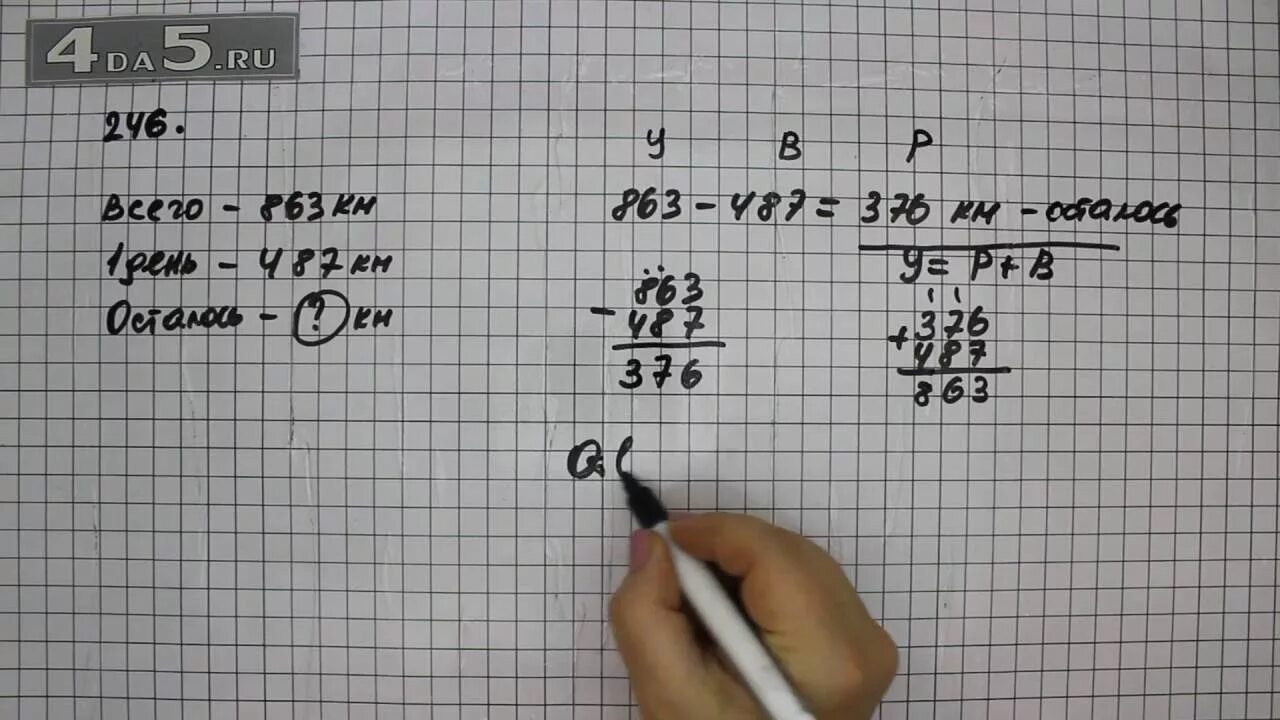 4DA5.RU
246.
Всего – 863 км
1 день – 487 км
Осталось – ? км
У В Р
863 – 487 = 376 км – осталось
863
– 487
376
У = Р + В
1 1
376
+ 487
863